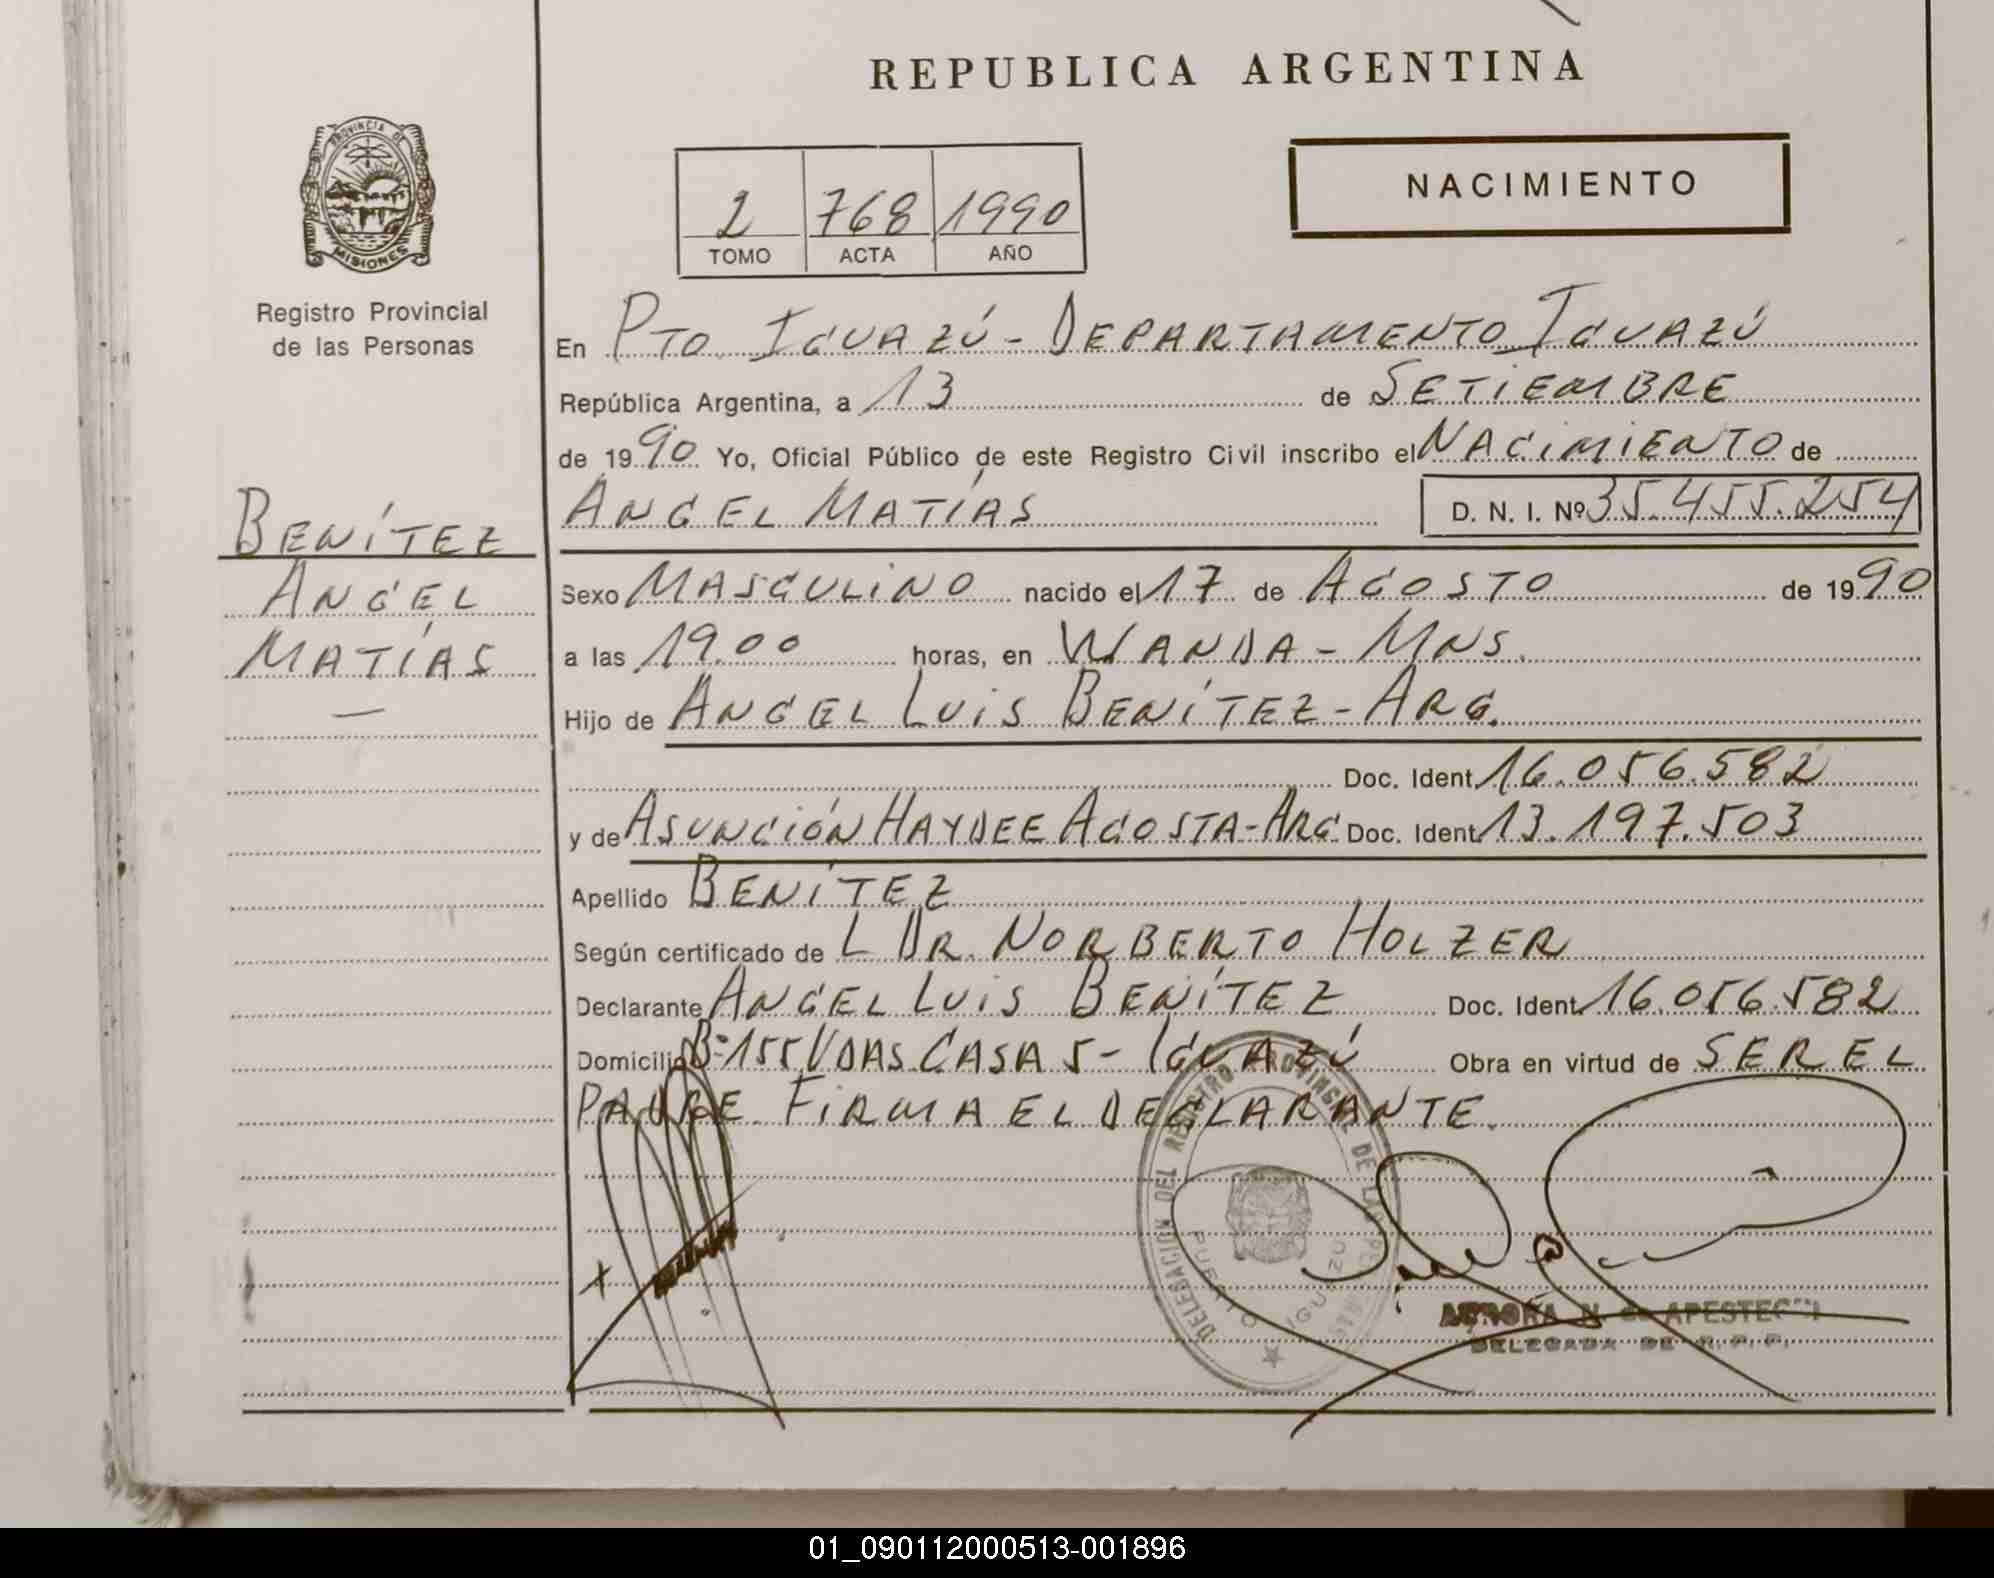 REPUBLICA ARGENTINA
PROVINCIA DE
MISIONES
Registro Provincial
de las Personas
2 768 1990
TOMO ACTA AÑO
NACIMIENTO
En PTO. IGUAZÚ - DEPARTAMENTO IGUAZÚ
República Argentina, a 13 de SETIEMBRE
de 1990 Yo, Oficial Público de este Registro Civil inscribo el NACIMIENTO de
ANGEL MATÍAS D. N. I. Nº 35.455.254
BENÍTEZ
ANGEL
MATÍAS
Sexo MASCULINO nacido el 17 de AGOSTO de 1990
a las 19.00 horas, en WANDA - MNS.
Hijo de ANGEL LUIS BENÍTEZ - ARG.
Doc. Ident. 16.056.582
y de ASUNCIÓN HAYDEE ACOSTA - ARG. Doc. Ident. 13.197.503
Apellido BENÍTEZ
Según certificado de L DR. NORBERTO HOLZER
Declarante ANGEL LUIS BENÍTEZ Doc. Ident. 16.056.582
Domicilio Bº 155 VDAS CASA 5 - IGUAZÚ Obra en virtud de SER EL
PADRE. FIRMA EL DECLARANTE.
DELEGACION DEL REGISTRO PROVINCIAL DE LAS
PUERTO IGUAZU
DELEGADA DE R. P. P.
01_090112000513-001896